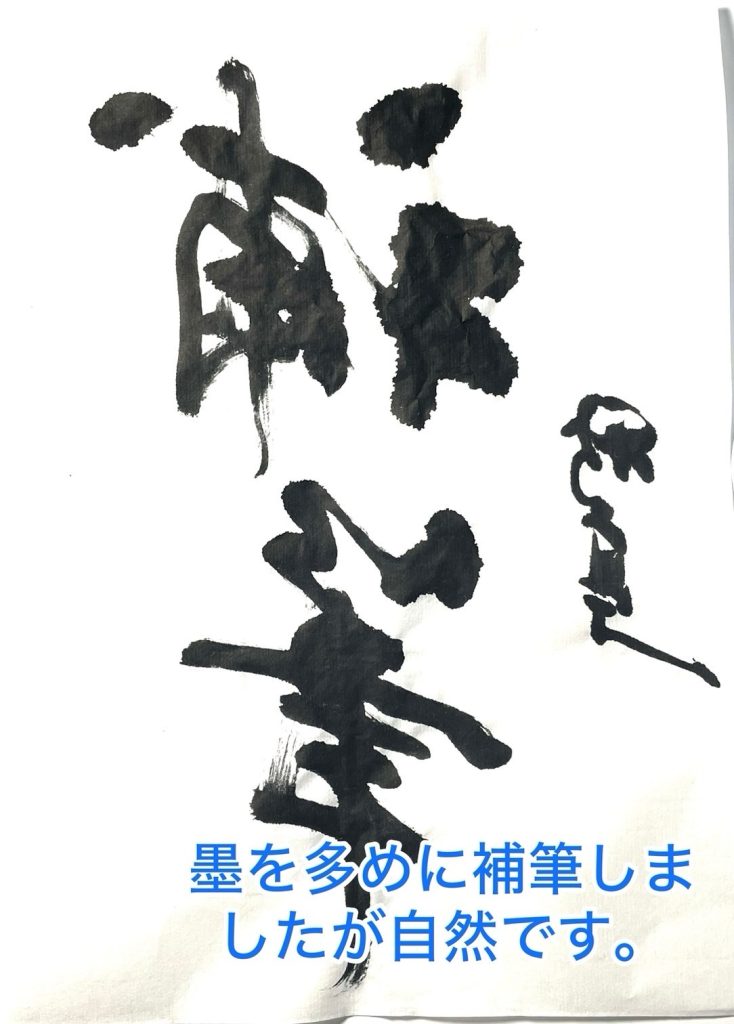 補筆
墨を多めに補筆しま
したが自然です。